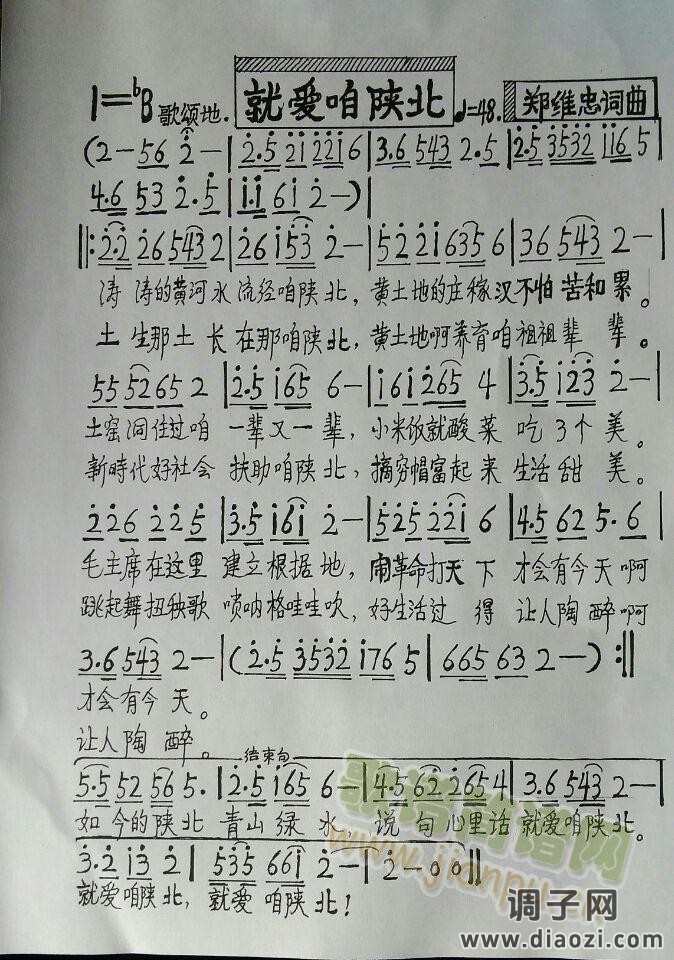 就爱咱陕北
1=♭B 歌颂地. ♩=48. 郑维忠词曲
(2-56 2-|2.5 21 2216|3.6 543 2.5|2.5 3532 116 5
4.6 53 2.5|1.1 61 2-)|
‖:2.2 26 543 2|26 153 2-|52 21 635 6|36 543 2-|
涛涛的黄河水流经咱陕北,黄土地的庄稼汉不怕苦和累。
土生那土长在那咱陕北,黄土地啊养育咱祖祖辈辈。
55 5265 2|2.5 165 6-|161 265 4|3.5 123 2-|
土窑洞住过咱一辈又一辈,小米饭就酸菜吃了个美。
新時代好社会扶助咱陕北,摘穷帽富起来生活甜美。
226 225|3.5 161 2-|525 221 6|4.5 62 5.6|
毛主席在这里建立根据地,闹革命打天下才会有今天啊
跳起舞扭秧歌唢呐格哇哇吹,好生活过得让人陶醉啊
3.6 543 2-|(2.5 3532 176 5|665 63 2-):‖
才会有今天。
让人陶醉。
结束句
5.5 52 56 5.|2.5 165 6-|4.5 62 265 4|3.6 543 2-|
如今的陕北青山绿水说句心里话就爱咱陕北。
3.2 13 2|535 661 2-|2-00‖
就爱咱陕北,就爱咱陕北!
歌谱简谱网
www.jianpu.cn
调子网
www.diaozi.com